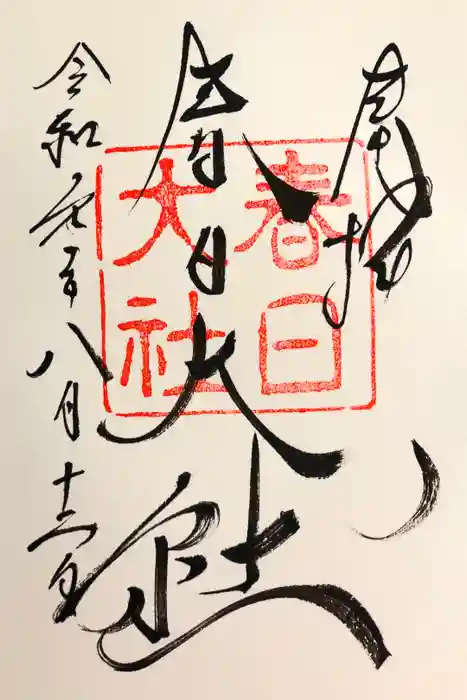 奉拝
春日
大社
春日大社
令和元年八月